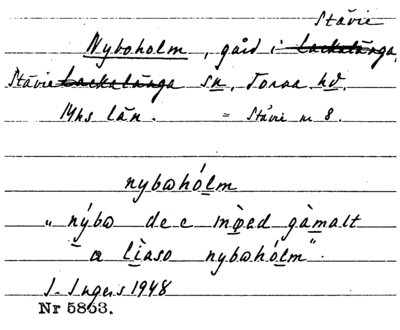 Stävie
Nyboholm, gård i Lackalänga,
Stävie Lackalänga sn, Torna hd.
Mhs län. = Stävie nr 8.
nybωhólm
"nýbω de e mø̀ed gàmalt
a lìaso nybωhólm".
I. Ingers 1948
Nr 5863.